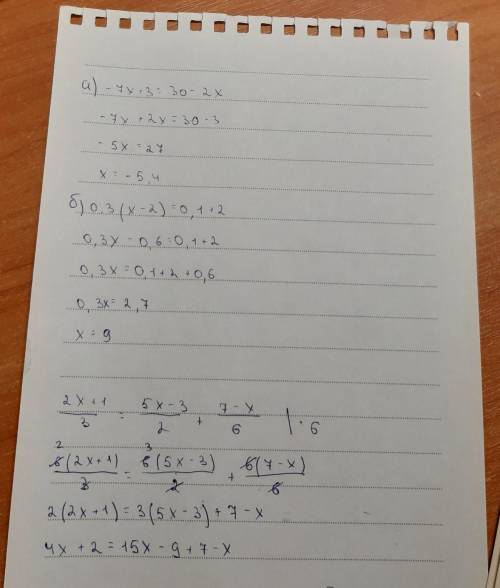 а) -7x+3 = 30-2x
-7x+2x = 30-3
-5x = 27
x = -5,4
б) 0,3(x-2) = 0,1+2
0,3x - 0,6 = 0,1+2
0,3x = 0,1+2+0,6
0,3x = 2,7
x = 9
(2x+1)/3 = (5x-3)/2 + (7-x)/6 | · 6
2 6(2x+1)/3 = 3 6(5x-3)/2 + 6(7-x)/6
2(2x+1) = 3(5x-3) + 7-x
4x+2 = 15x-9+7-x